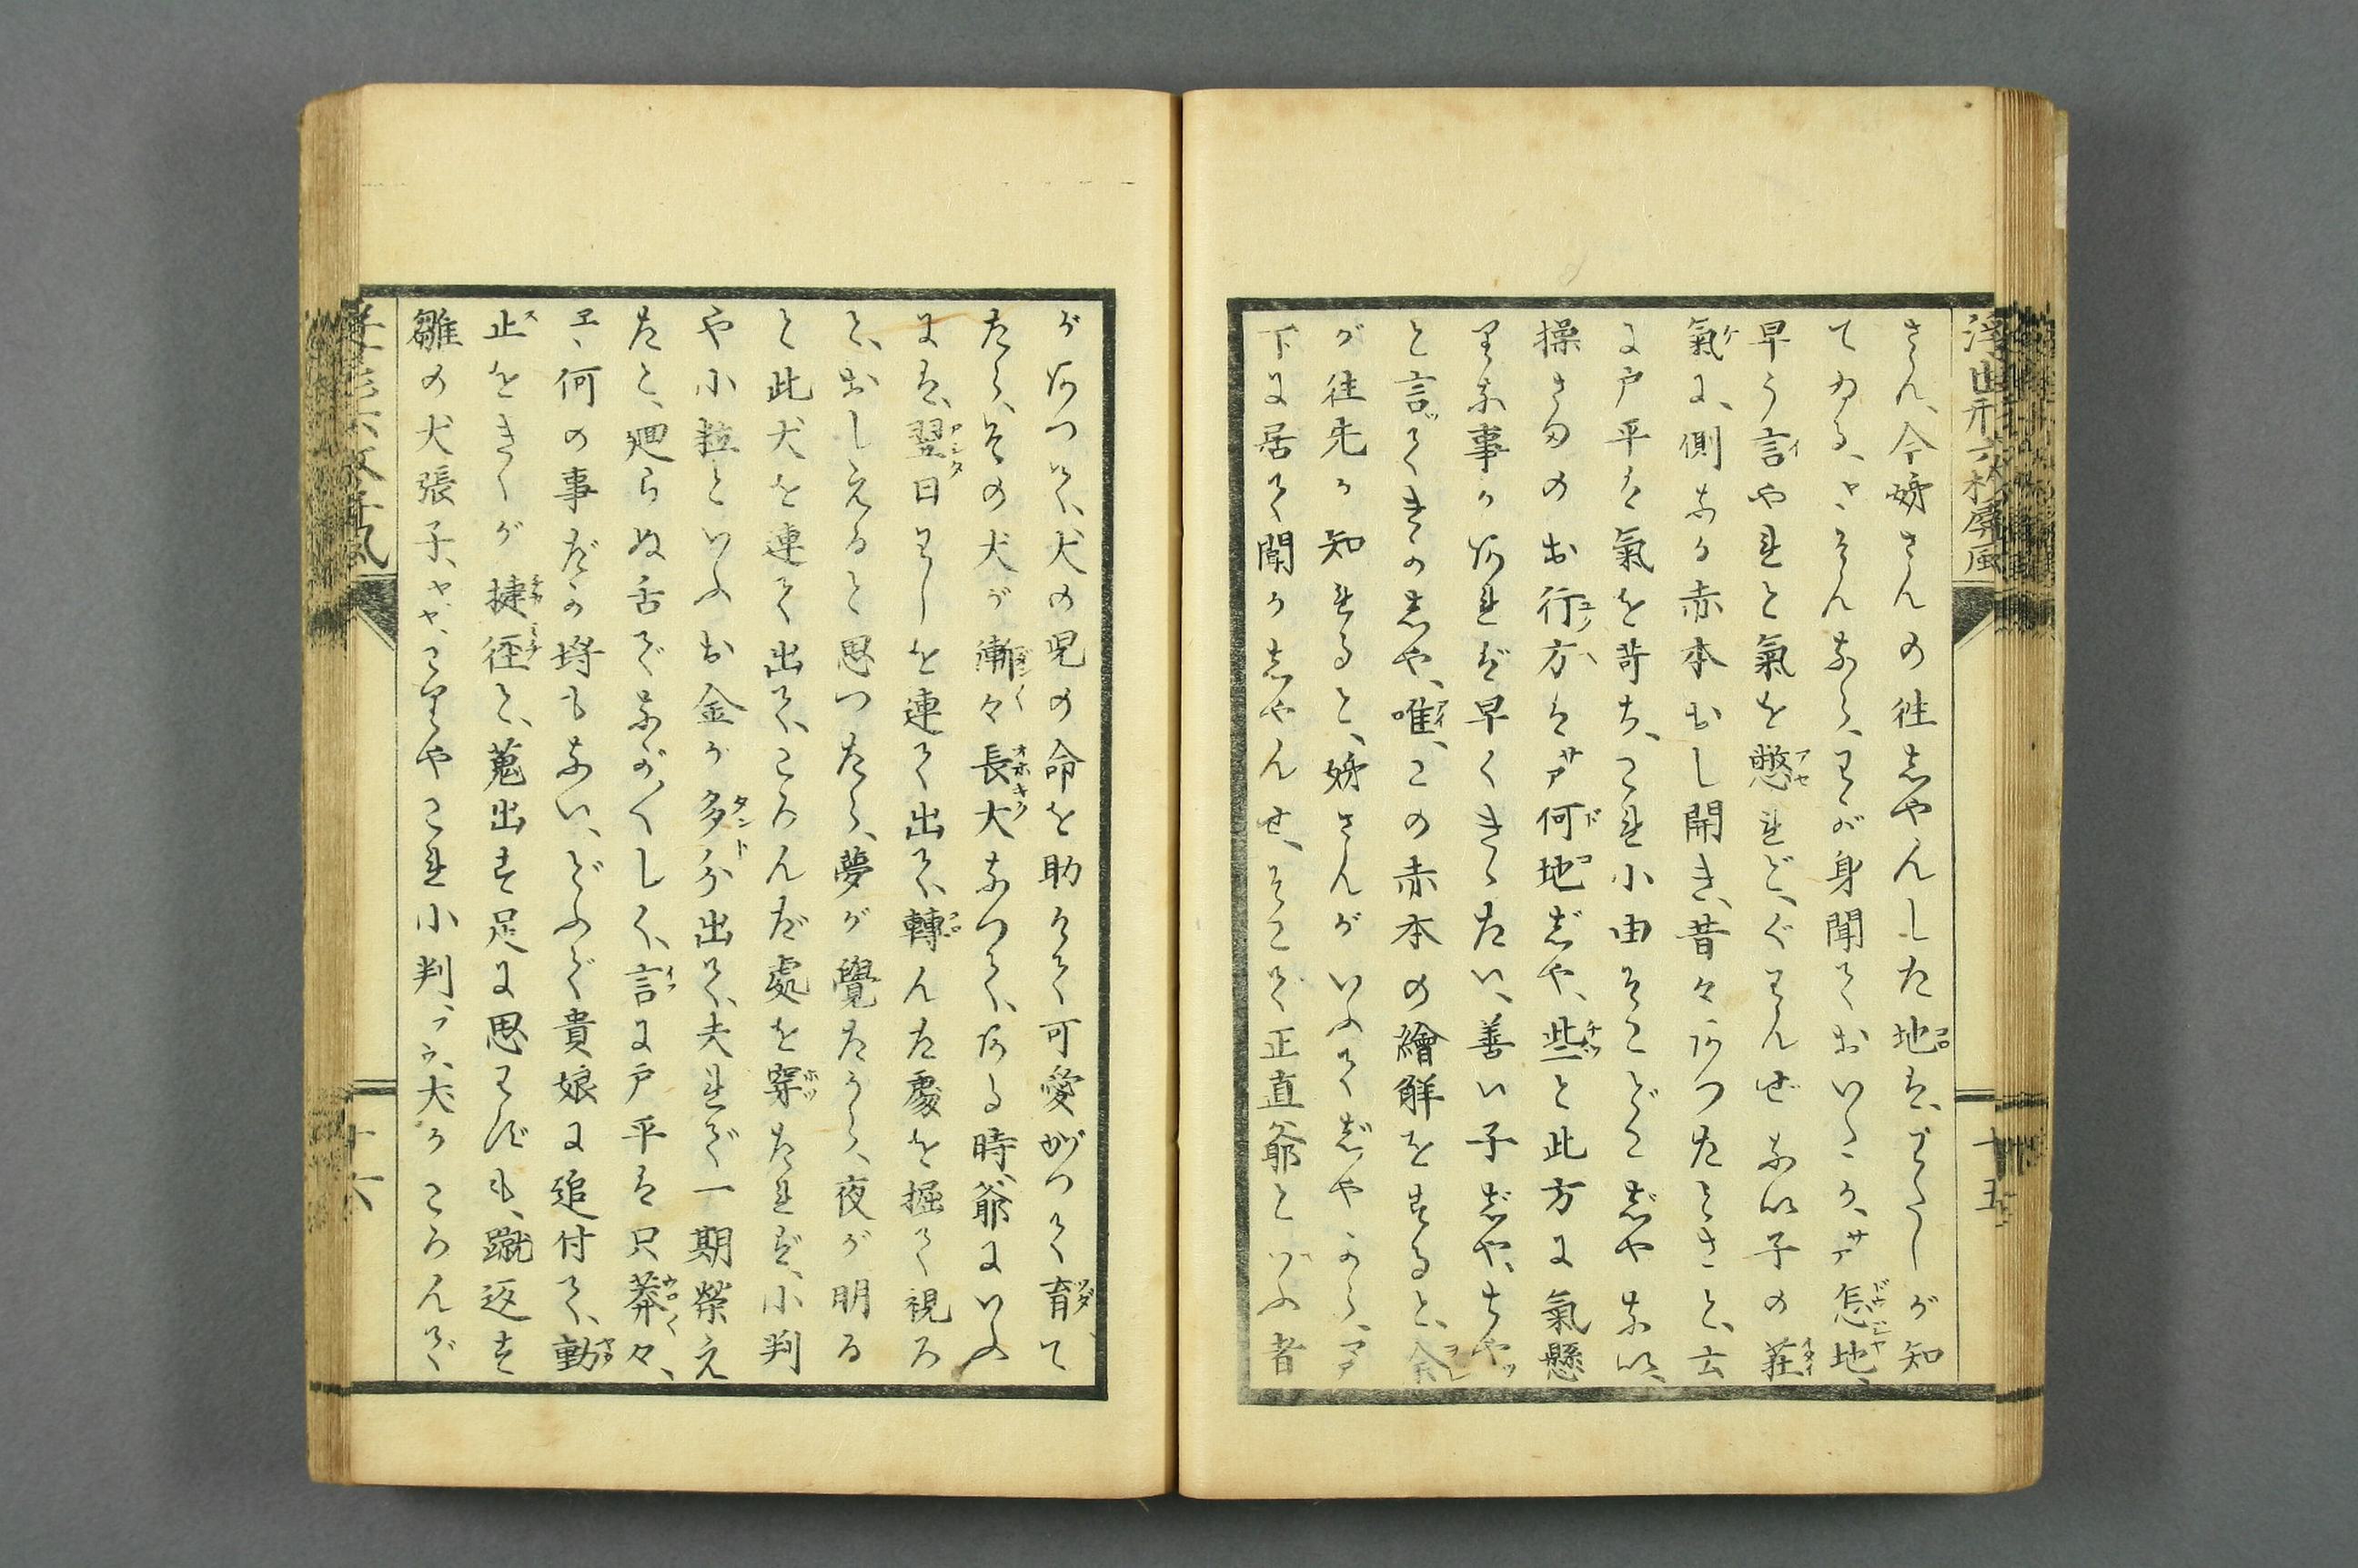 浮世形六枚屏風
十五
さん、今姉さんの徃しやんした地は、わたしが知
てゐる、サヽそんなら、わが身聞ておいたか、サア怎地、
早う言やれと氣を憋れど、ぐわんぜない子の荘
氣に、側なる赤本おし開き、昔々あつたとさと、云
に戸平は氣を苛ち、これ小由そこどこじやない、
操さまのお行方はサア何地じや、些と此方に氣懸
りな事があれば早くきゝたい、善い子じや、ちやツ
と言ばてくきのじや、唯、この赤本の繪解をすると、余
が徃先が知れると、姉さんがいふてじやから、マア
下に居て聞かしやんせ、そこで正直爺といふ者
があつて、犬の児の命を助けて可愛がつて育て
たら、その犬が漸々長大なつて、ある時、爺にいふ
には、翌日わしを連て出て、轉んだ處を掘て視ろ
と、おしえると思つたら、夢が覺たから、夜が明る
と此犬を連て出て、ころんだ處を穿たれば、小判
や小粒といふお金が多分出て、夫れで一期榮え
たと、廻らぬ舌でながくしく、言に戸平は只莽々、
エヽ何の事だか埒もない、どふで貴娘に追付て、動
止をきくが捷徑と、蒐出す足に思わずも、蹴返す
雛の犬張子、ヤヤ、こりやこれ小判、フウ、犬がころんで
十六